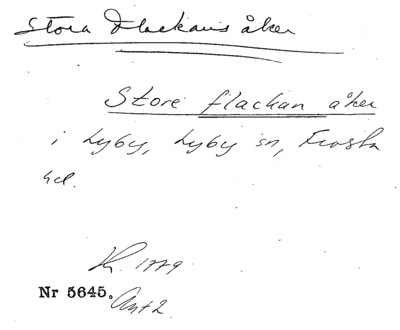 Stora Flackans åker
Store flackan åker
i Lyby, Lyby sn, Frosta
hd.
1779
Nr 5645.